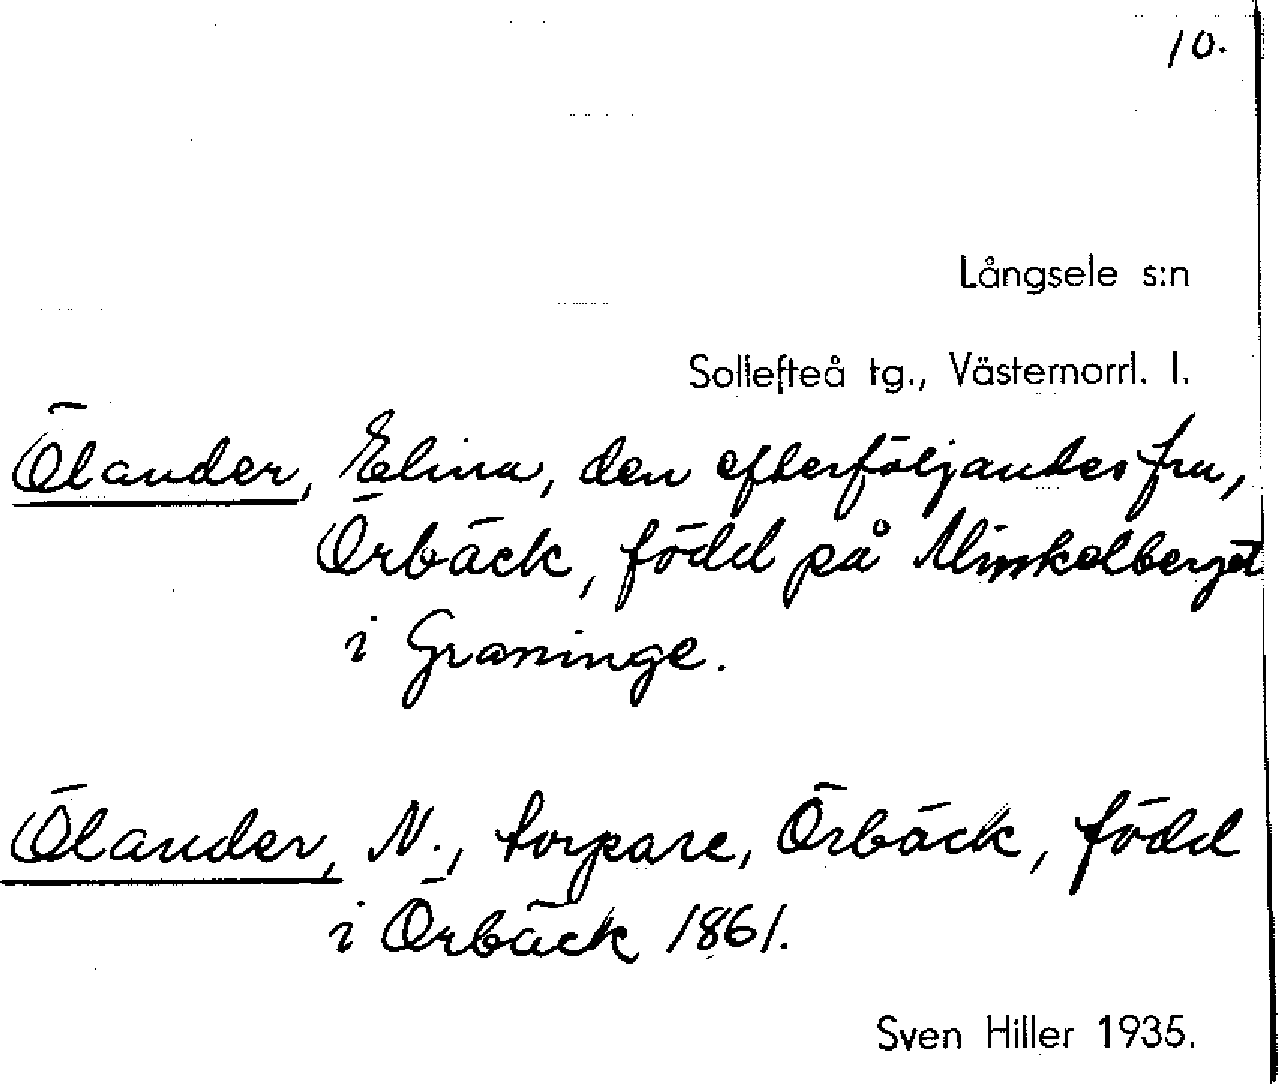 10.
Långsele s:n
Sollefteå tg., Västernorrl. l.
Ölander, Elina, den efterföljandes fru,
Örbäck, född på
i Graninge.
Ölander, N., torpare, Örbäck, född
i Örbäck 1861.
Sven Hiller 1935.